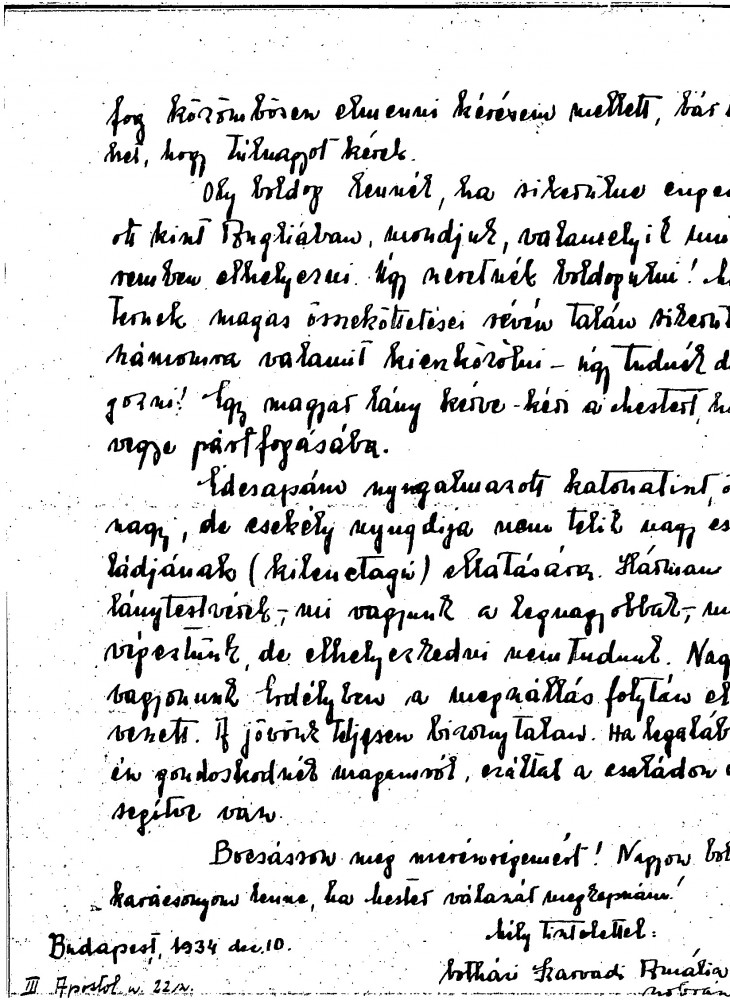 fog közömbösen elmenni kérésem mellett, bár
het, hogy túlnagyot kérek.
Oly boldog lennék, ha sikerülne enge
ott kint Angliában, mondjuk, valamelyik
remben elhelyezni. Úgy szeretnék boldogulni!
ternek magas összeköttetései révén talán sikerül
számomra valamit kieszközölni – úgy tudnék d
gozni! Egy magyar lány kérve-kéri a Mestert, h
vegye pártfogásába.
Édesapám nyugalmazott katonatiszt, ő
nagy, de csekély nyugdíja nem telik nagy cs
ládjának (kilenctagú) ellátására. Hárman
lánytestvérek, – mi vagyunk a legnagyobbak, –
végeztünk, de elhelyezkedni nem tudunk. Nag
vagyonunk Erdélyben a megszállás folytán el
veszett. A jövőnk teljesen bizonytalan. Ha legaláb
én gondoskodnék magamról, ezáltal a családon
segítve van.
Bocsásson meg merészségemért! Nagyon bol
karácsonyom lenne, ha Mester válaszát megkapnám!
Mély tisztelettel:
Budapest, 1934 dec. 10.
Amália
III Apostol u. 22 sz.